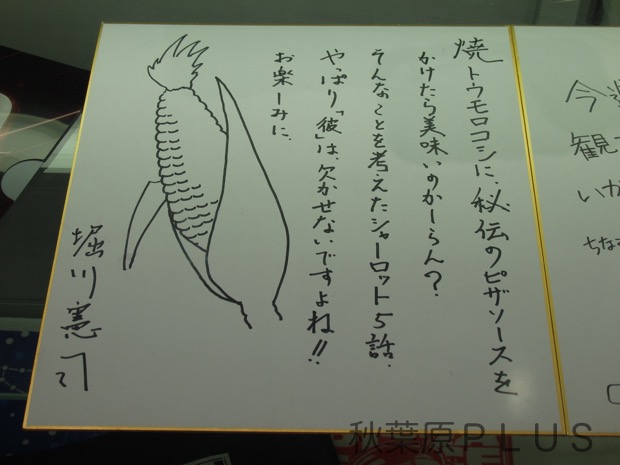 焼トウモロコシに、秘伝のピザソースを
かけたら美味いのかしらん？
そんなことを考えたシャーロット5話.
やっぱり「彼」は、欠かせないですよね!!
お楽しみに、
堀川憲司
今
観
いか
ちな
秋葉原PLUS